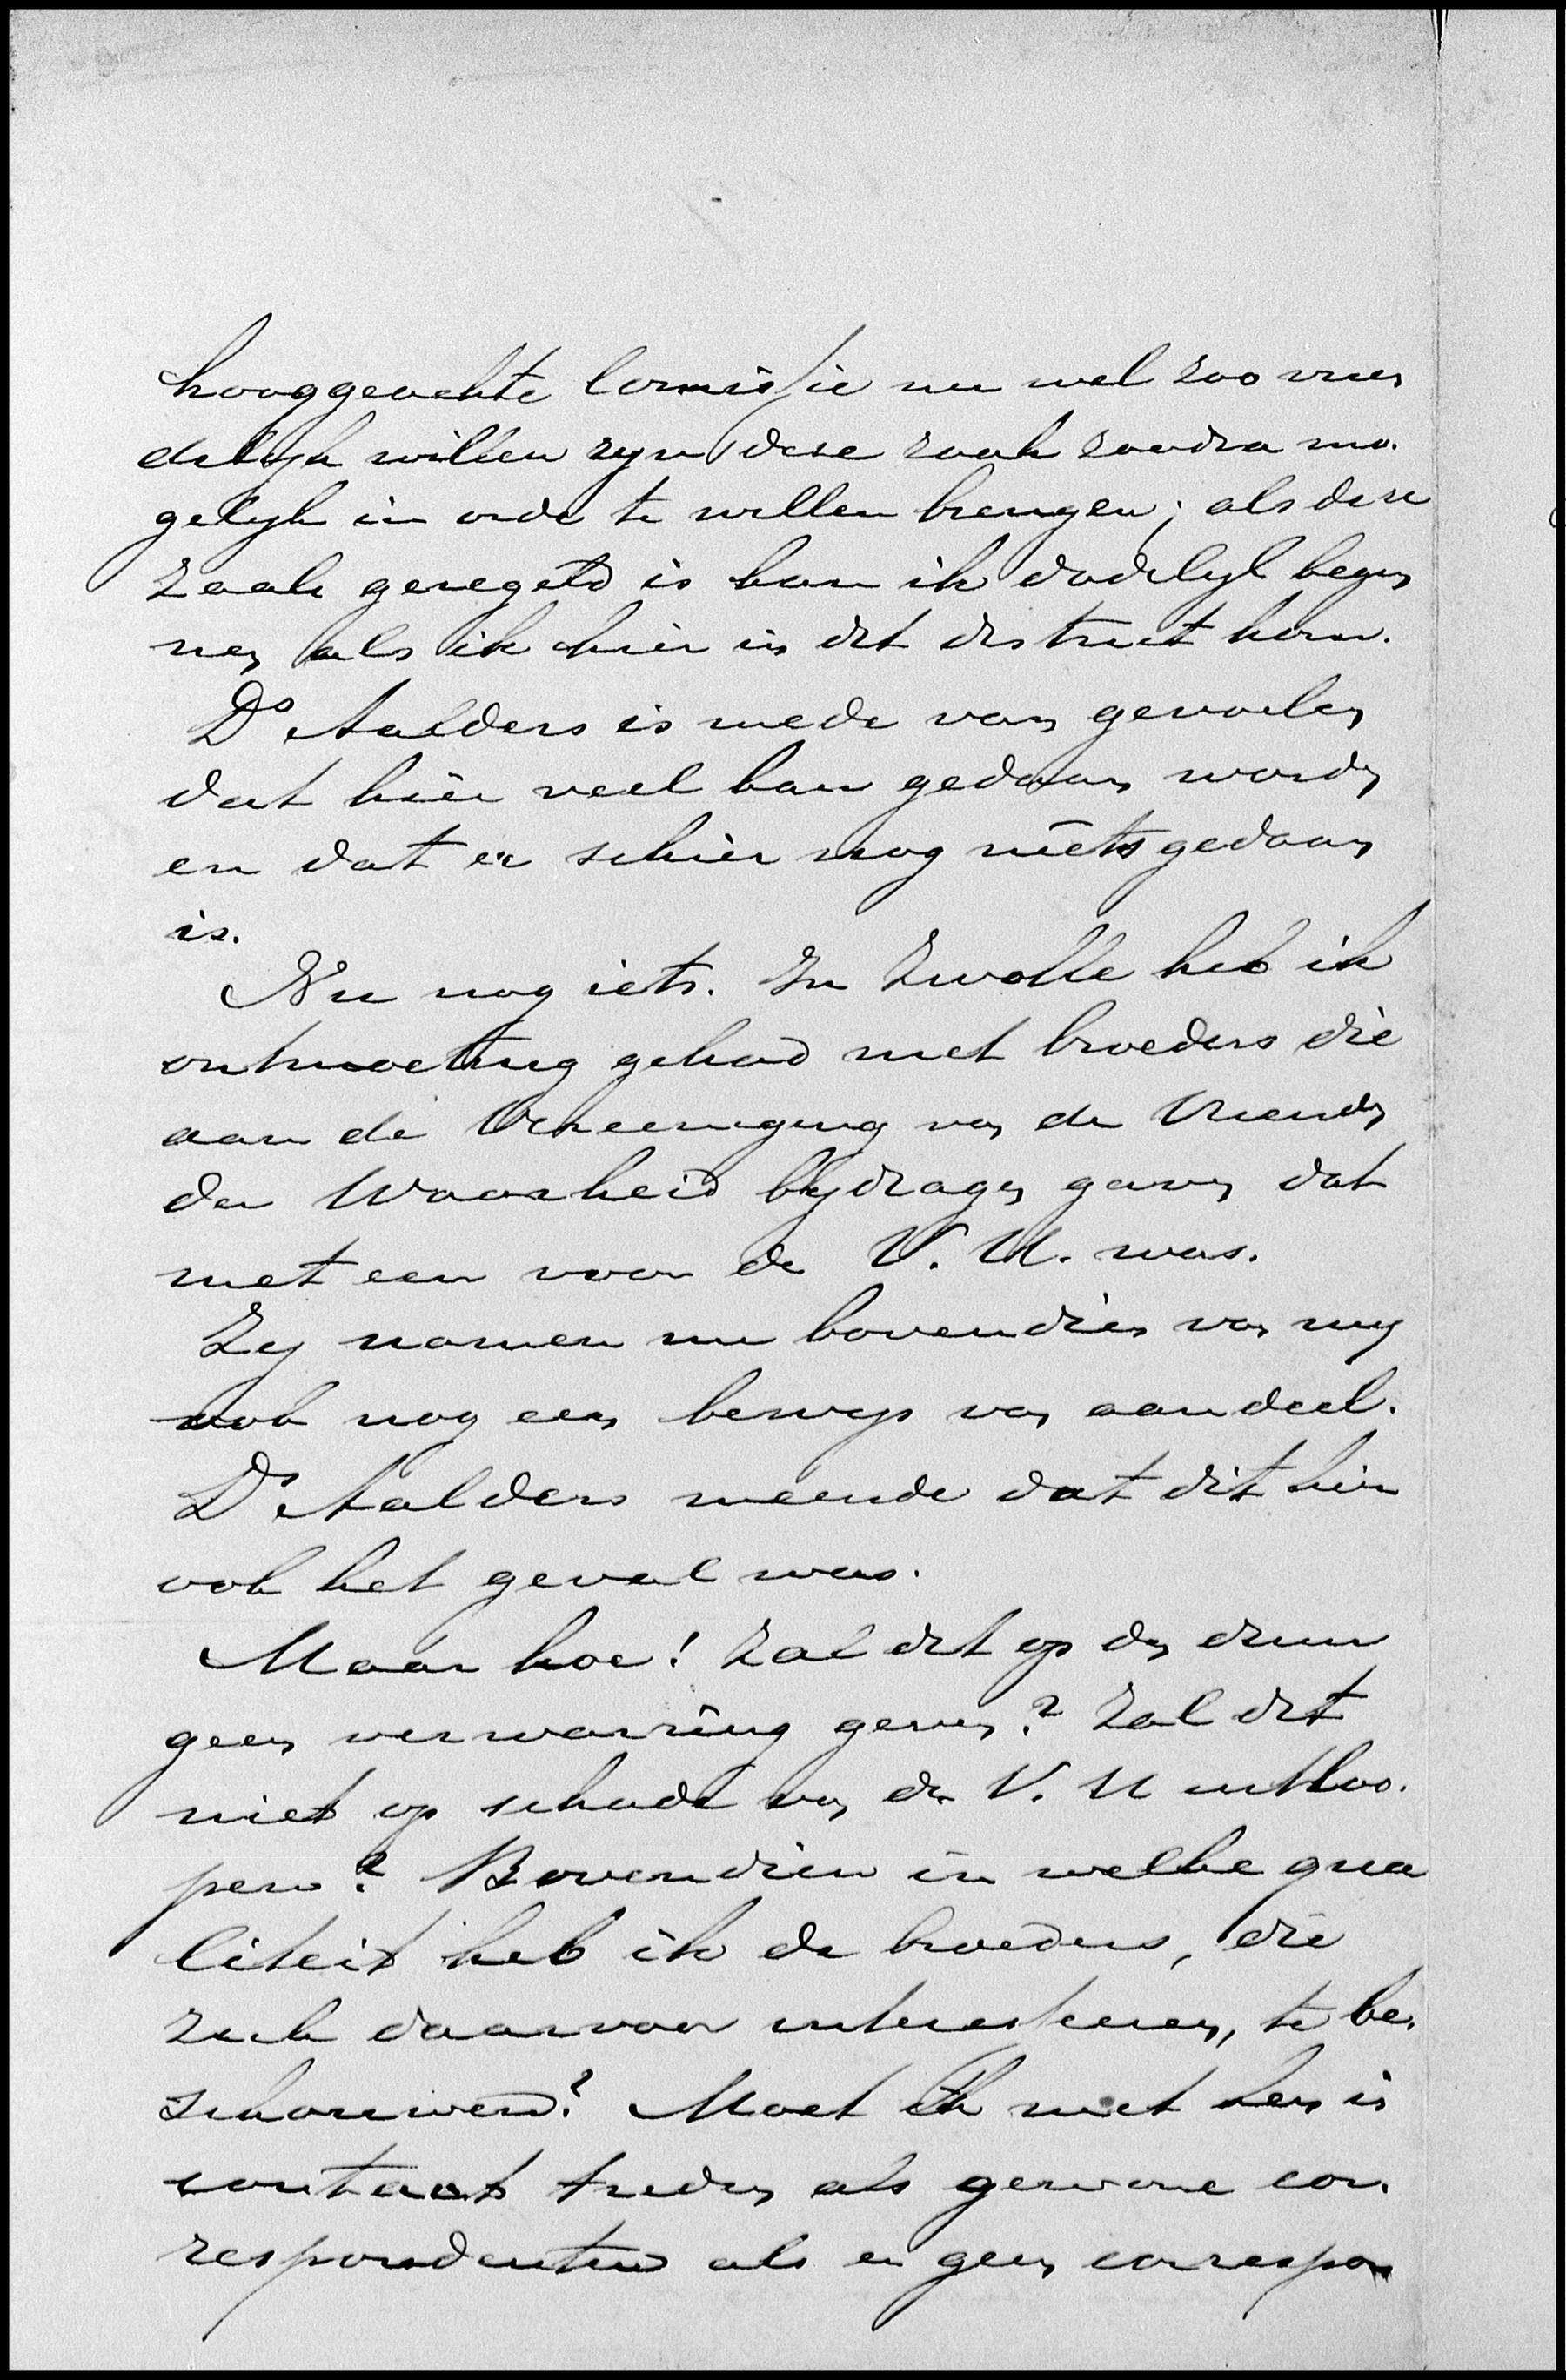 hooggeachte Comissie nu wel zoo vrien
delijk willen zijn deze zaak zoodra mo-
gelijk in orde te willen brengen; als deze
zaak geregeld is kan ik dadelijk begin
nen als ik hier in dit district kom.
Ds Aalders is mede van gevoelen
dat hier veel kan gedaan worden
en dat er schier nog niets gedaan
is.
Nu nog iets. In Zwolle heb ik
ontmoeting gehad met broeders die
aan de Vereeniging van de Vrienden
der Waarheid bijdragen gaven dat
met een voor de V. U. was.
Zij namen nu bovendien van mij
ook nog een bewijs van aandeel.
Ds Aalders meende dat dit hier
ook het geval was.
Maar hoe! Zal dit op den duur
geen verwarring geven? Zal dit
niet op schade van de V. U uitloo-
pen? Bovendien in welke qua
liteit heb ik de broeders, die
zich daarvoor interesseeren, te be-
schouwen? Moet ik met hen in
contact treden als gewone cor-
respondenten als er geen correspon